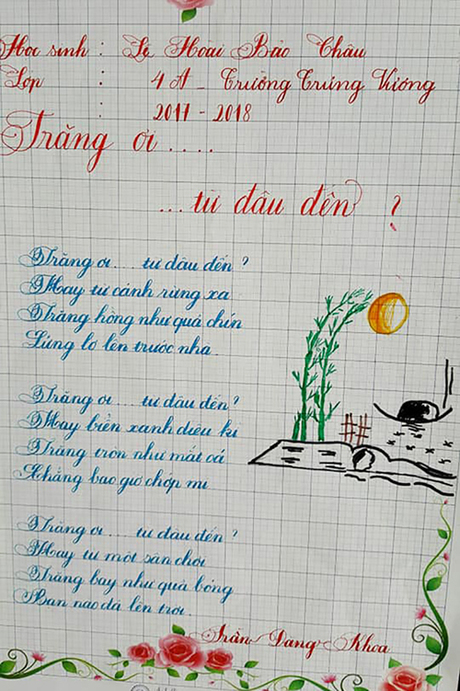 Học sinh : Lê Hoài Bảo Châu
Lớp : 4A - Trường Trưng Vương
: 2017 - 2018
Trăng ơi ....
... từ đâu đến ?
Trăng ơi ..... từ đâu đến ?
Hay từ cánh rừng xa
Trăng hồng như quả chín
Lửng lơ lên trước nhà
Trăng ơi ... từ đâu đến ?
Hay biển xanh diệu kì
Trăng tròn như mắt cá
Chẳng bao giờ chớp mi
Trăng ơi ... từ đâu đến ?
Hay từ một sân chơi
Trăng bay như quả bóng
Bạn nào đá lên trời
Trần Đăng Khoa